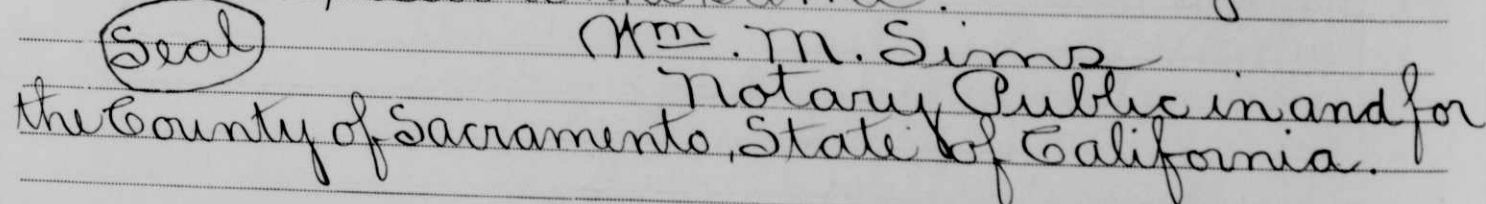 Seal Wm. M. Sims
Notary Public in and for
the County of Sacramento, State of California.